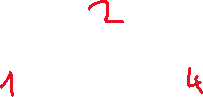 2
1 4